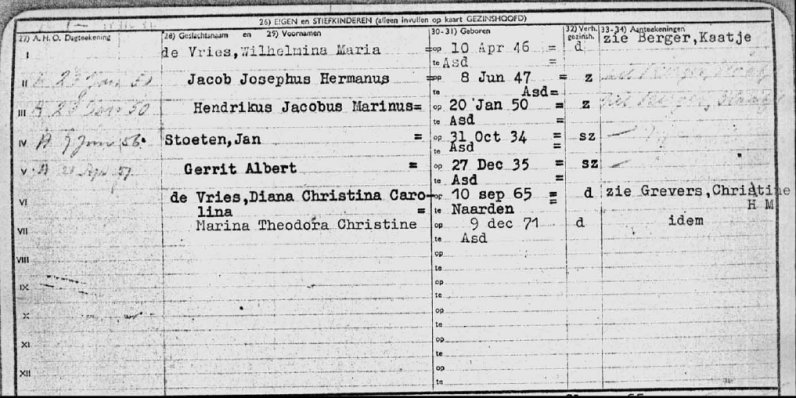 26) EIGEN en STIEFKINDEREN (alleen invullen op kaart GEZINSHOOFD)
27) A. H. O. Dagteekening 28) Geslachtsnaam en 29) Voornamen 30-31) Geboren 32) Verh. gezinsh. 33-34) Aanteekeningen
I de Vries,Wilhelmina Maria =op 10 Apr 46 = d zie Berger,Kaatje
te Asd =
II Jacob Josephus Hermanus =op 8 Jun 47 = z
te Asd=
III A 50 Hendrikus Jacobus Marinus= op 20 Jan 50 = z
te Asd =
IV A 9 Juni 56. Stoeten,Jan = op 31 Oct 34 = sz
te Asd =
V A 57 Gerrit Albert = op 27 Dec 35 = sz
te Asd =
VI de Vries,Diana Christina Caro= op 10 sep 65 = d zie Grevers,Christine
lina = te Naarden = H M
VII Marina Theodora Christine op 9 dec 71 d idem
te Asd
VIII op
te
IX op
te
X op
te
XI op
te
XII op
te